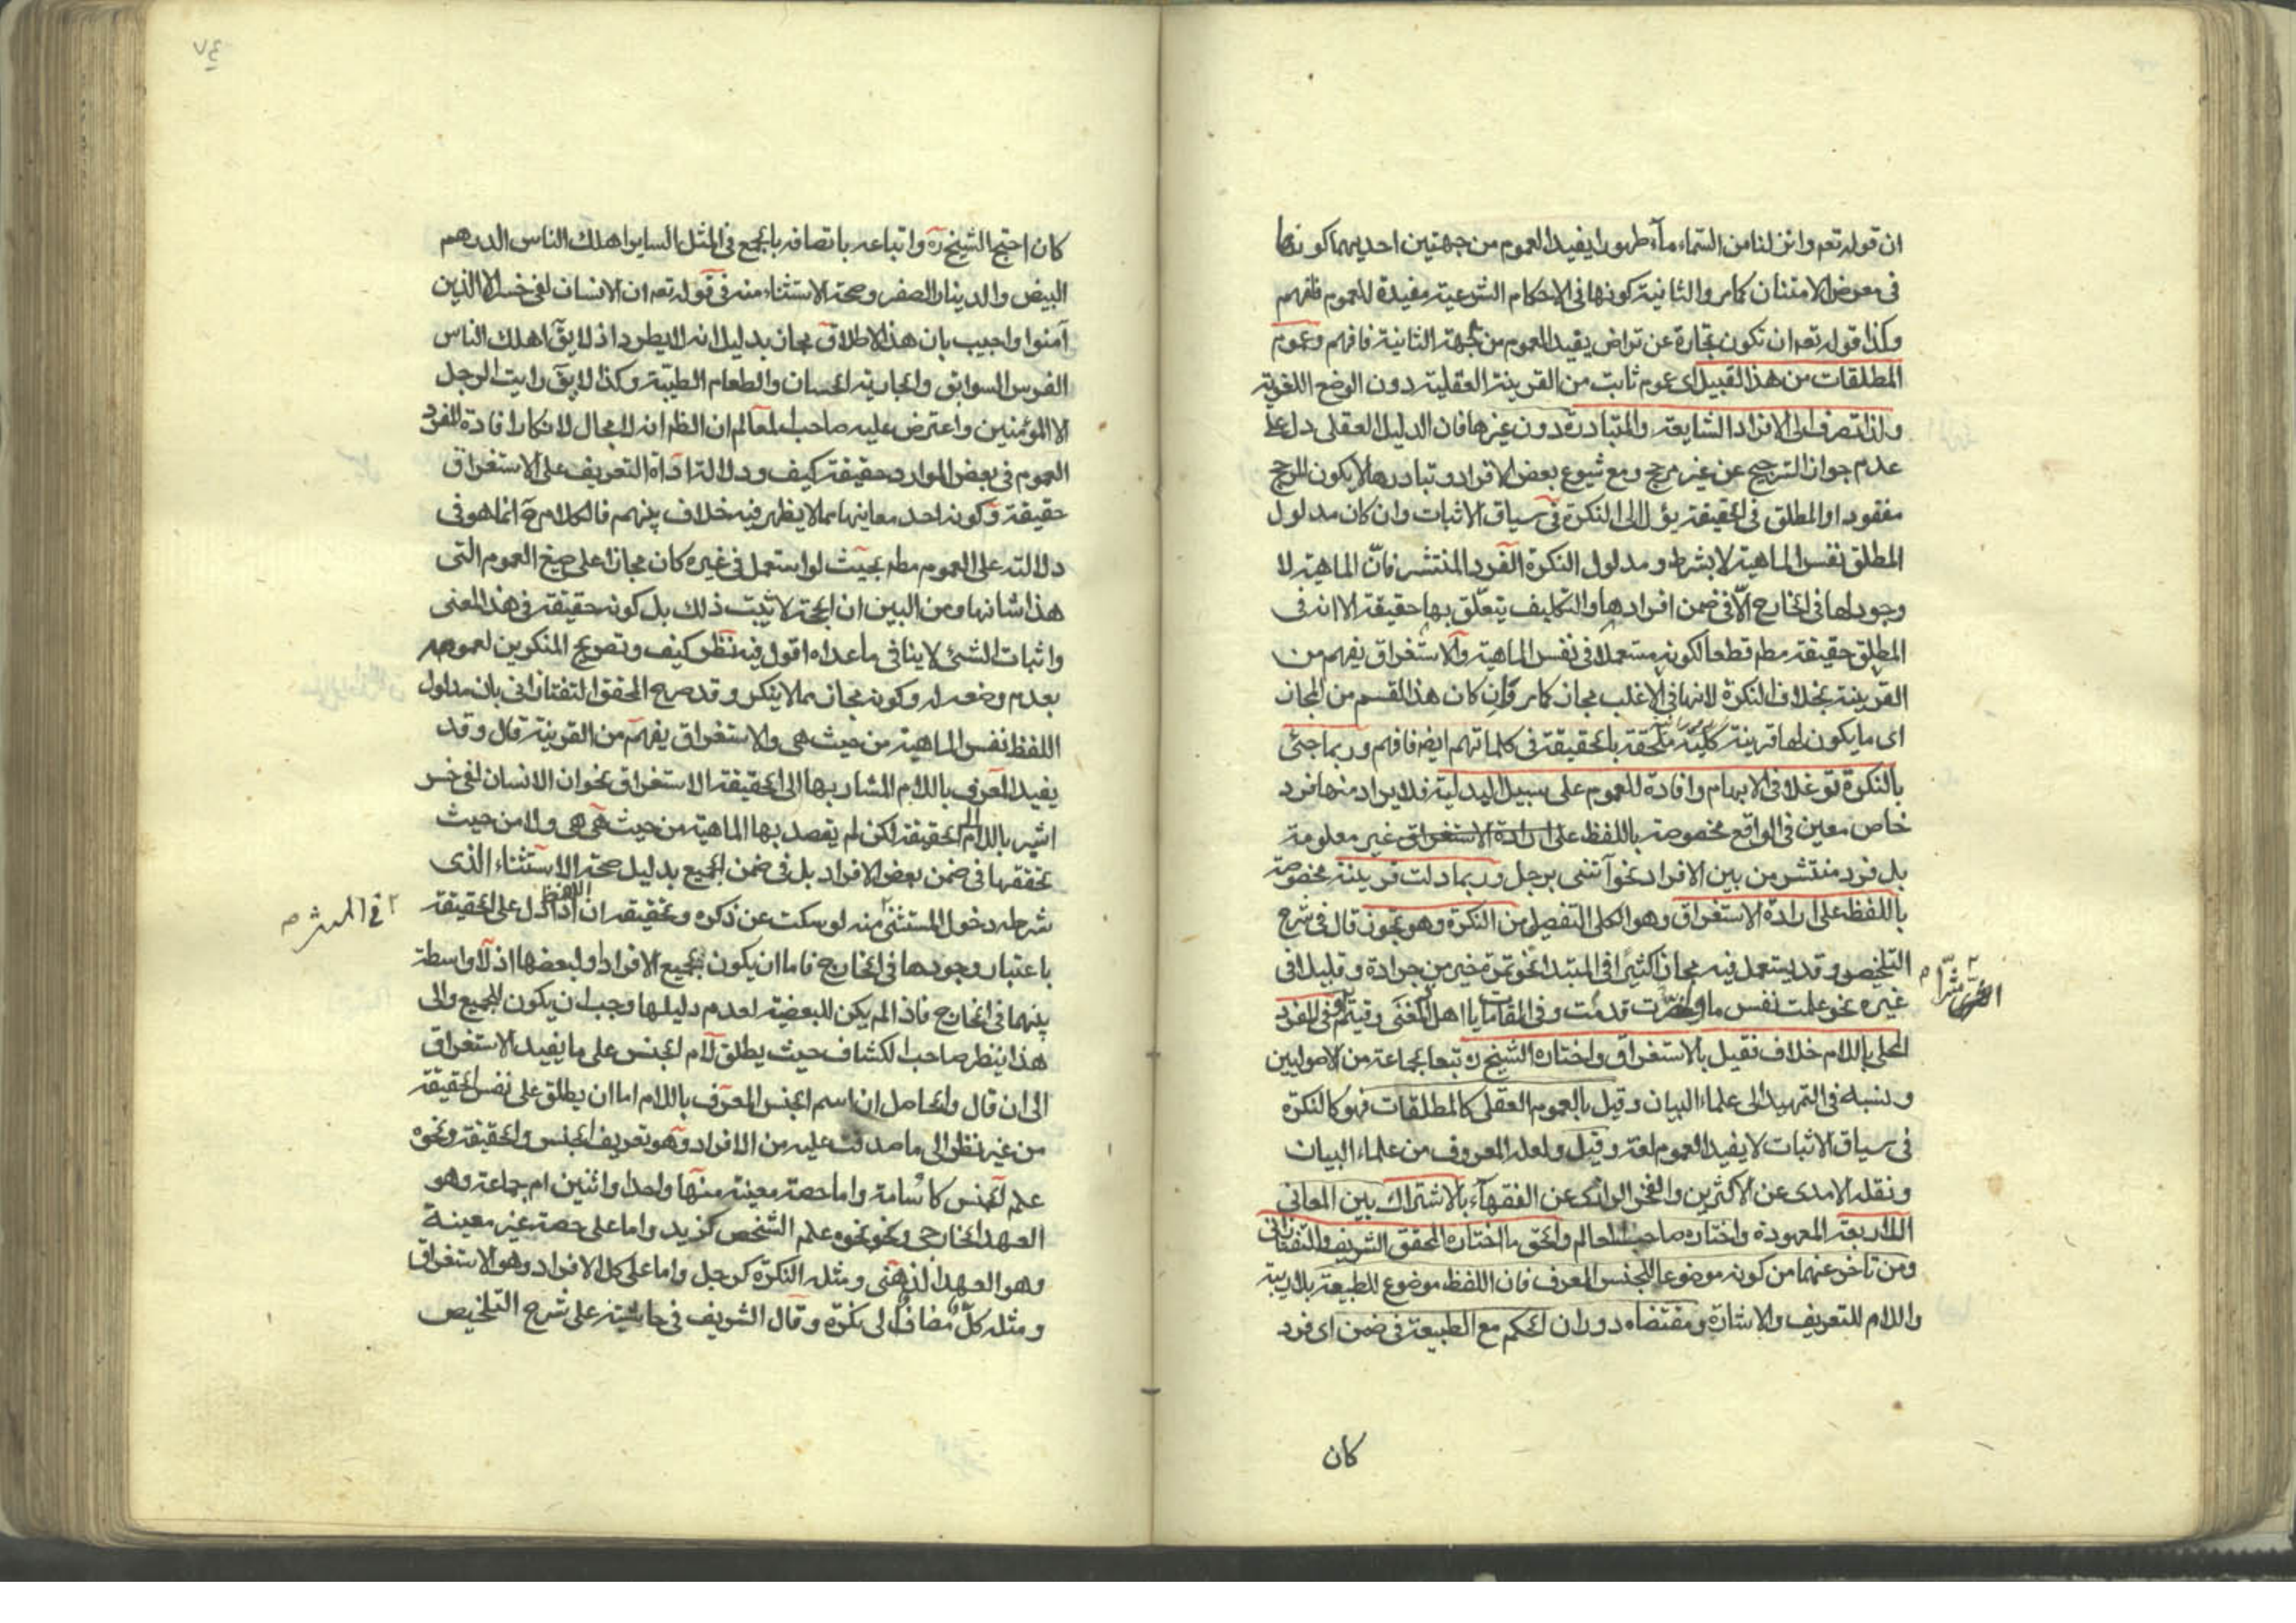 ان قوله تعم وانزلنا من السماء مآء طهورا يفيد العموم من جهتين احديهما كونها
فى معرض الامتنان كما مر والثانية كونها فى الاحكام الشرعية مفيدة للعموم فافهم
وكذا قوله تعم ان تكون تجارة عن تراض يفيد العموم من جهة الثانية فافهم وعموم
المطلقات من هذا القبيل اى عموم ثابت من القرينة العقلية دون الوضع اللغوية
ولذا تصرف الى الافراد الشايعة والمتبادرة دون غيرها فان الدليل العقلى دل على
عدم جواز الترجيح عن غير مرجح ومع شيوع بعض الافراد وتبادرها لا يكون المرجح
مفقودا والمطلق فى الحقيقة يؤل الى النكرة فى سياق الاثبات وان كان مدلول
المطلق نفس الماهية لا بشرط ومدلول النكرة الفرد المنتشر فانّ الماهية لا
وجود لها فى الخارج الّا فى ضمن افرادها والتكليف يتعلّق بها حقيقة الا انه فى
المطلق حقيقة مطم قطعا لكونه مستعملا فى نفس الماهية والاستغراق يفهم من
القرينة بخلاف النكرة لانها فى الاغلب مجاز كما مر وان كان هذا القسم من المجاز
اى ما يكون لها قرينة كلية ملحقة بالحقيقة فى كلماتهم ايضا فافهم وربما جئى
بالنكرة توغلا فى الابهام وافادة للعموم على سبيل البدلية فلا يراد منها فرد
خاص معين فى الواقع مخصوصة باللفظ على ارادة الاستغراق غير معلومة
بل فرد منتشر من بين الافراد نحو آتنى برجل وربما دلت قرينة مخصوصة
باللفظ على ارادة الاستغراق وهو الكلى التفصيلى من النكرة وهو تجوز قال فى شرح
التلخيص وقد يستعمل فيه مجازا كثيرا فى المبتدا نحو تمرة خير من جرادة وقليلا فى
غيره نحو علمت نفس ما قدمت وفى المقامات يا اهل ذا المغنى وقيتم وفى المفرد
المحلى باللام خلاف فقيل بالاستغراق واختاره الشيخ ره تبعا لجماعة من الاصوليين
ونسبه فى التمهيد الى علماء البيان وقيل بالعموم العقلى كالمطلقات فهو كالنكرة
فى سياق الاثبات لا يفيد العموم لغة وقيل ولعله المعروف من علماء البيان
ونقله الامدى عن الاكثرين والفخر الرازى عن الفقهاء بالاشتراك بين المعانى
الاربعة المعهودة واختاره صاحب المعالم والحق ما اختاره المحقق الشريف والتفتازانى
ومن تأخر عنهما من كونه موضوعا للجنس المعرف فان اللفظ موضوع للطبيعة بلا ريبة
واللام للتعريف والاشارة ومقتضاه دوران الحكم مع الطبيعة فى ضمن اى فرد
كان
٧٤
كان احتج الشيخ ره واتباعه باتصافه بالجمع فى المثل الساير اهلك الناس الدرهم
البيض والدينار الصفر وصحة الاستثناء منه فى قوله تعم ان الانسان لفى خسر الا الذين
آمنوا واجيب بان هذا الاطلاق مجاز بدليل انه لا يطرد اذ لا يقّ اهلك الناس
الفرس السوابق والجارية الحسان والطعام الطيبة وكذا لا يقّ رايت الرجل
الا المؤمنين واعترض عليه صاحب المعالم ان الظم انه لا مجال لانكار افادة المفرد
العموم فى بعض الموارد حقيقة كيف ودلالة اداة التعريف على الاستغراق
حقيقة وكونه احد معانيها مما لا يظهر فيه خلاف بينهم فالكلام ح انما هو فى
دلالته على العموم مطم بحيث لو استعمل فى غيره كان مجازا على صيغ العموم التى
هذا شانها ومن البين ان الحجة لا تثبت ذلك بل كونه حقيقة فى هذا المعنى
واثبات الشئ لا ينافى ما عداه اقول فيه نظر كيف وتصريح المنكرين لعمومه
بعدم وضعه له وكونه مجاز مما لا ينكر وقد صرح المحقق التفتازانى بان مدلول
اللفظ نفس الماهية من حيث هى والاستغراق يفهم من القرينة قال وقد
يفيد المعرف باللام المشار بها الى الحقيقة الاستغراق نحو ان الانسان لفى خسر
اشير باللام الى الحقيقة لكن لم يقصد بها الماهية من حيث هى هى ولا من حيث
تحققها فى ضمن بعض الافراد بل فى ضمن الجميع بدليل صحة الاستثناء الذى
شرطه دخول المستثنى منه لو سكت عن ذكره وتحقيقه ان اللفظ اذا دل على الحقيقة
باعتبار وجودها فى الخارج فاما ان يكون لجميع الافراد او لبعضها اذ لا واسطة
بينهما فى الخارج فاذا لم يكن للبعضية لعدم دليلها وجب ان يكون للجميع والى
هذا ينظر صاحب الكشاف حيث يطلق لام الجنس على ما يفيد الاستغراق
الى ان قال والحاصل ان اسم الجنس المعرف باللام اما ان يطلق على نفس الحقيقة
من غير نظر الى ما صدقت عليه من الافراد وهو تعريف الجنس والحقيقة ونحوه
علم الجنس كاسامة واما حصة معينة منها واحدا واثنين ام جماعة وهو
العهد الخارجى ونحوه علم الشخص كزيد واما على حصة غير معينة
وهو العهد الذهنى ومثله النكرة كرجل واما على كل الافراد وهو الاستغراق
ومثله كلّ مضافا الى نكرة وقال الشريف فى حاشيته على شرح التلخيص